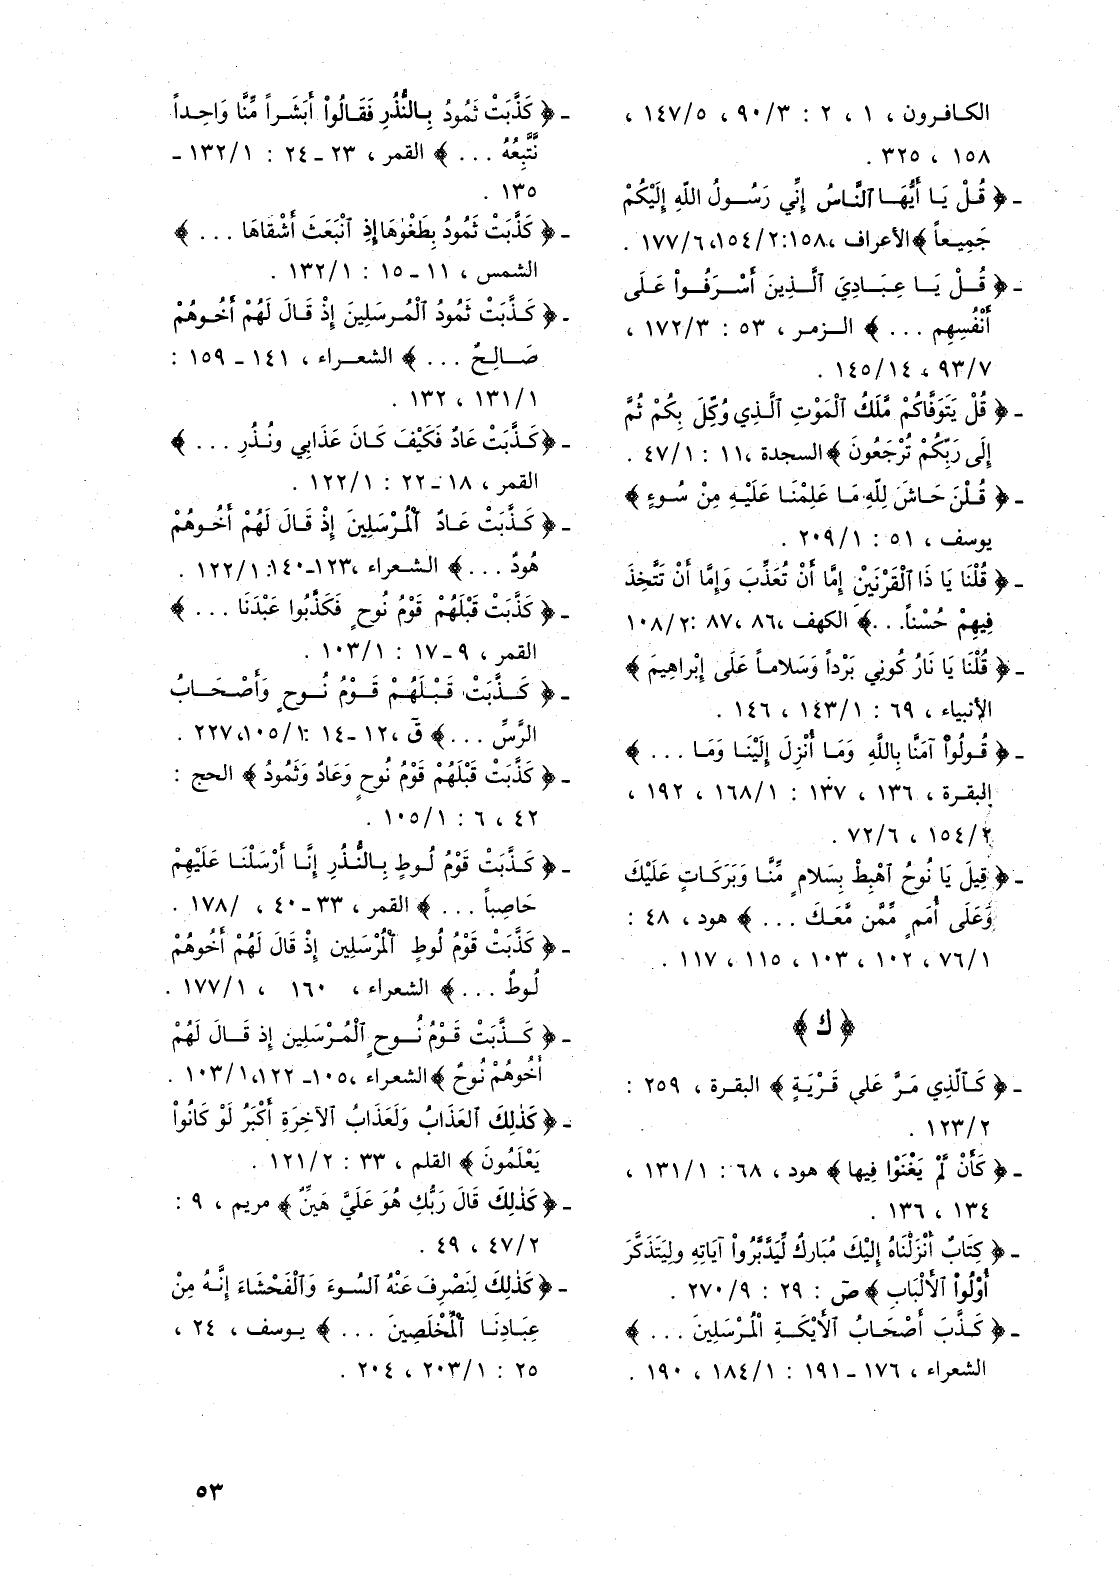 الكافرون ، ١ ، ٢ : ٩٠/٣ ، ١٤٧/٥ ،
١٥٨ ، ٣٢٥ .
ـ ﴿ قُلْ يَا أَيُّهَا ٱلنَّاسُ إِنِّي رَسُولُ اللّهِ إِلَيْكُمْ
جَمِيعاً ﴾الأعراف ،١٥٨:١٥٤/٢،١٧٧/٦ .
ـ ﴿ قُلْ يَا عِبَادِيَ ٱلَّذِينَ أَسْرَفُواْ عَلَى
أَنْفُسِهِم ... ﴾ الزمر ، ٥٣ : ١٧٢/٣ ،
٩٣/٧ ، ١٤٥/١٤ .
ـ ﴿ قُلْ يَتَوَفَّاكُمْ مَّلَكُ ٱلْمَوْتِ ٱلَّذِي وُكِّلَ بِكُمْ ثُمَّ
إِلَى رَبِّكُمْ تُرْجَعُونَ ﴾السجدة ،١١ : ٤٧/١ .
ـ ﴿ قُلْنَ حَاشَ لِلّهِ مَا عَلِمْنَا عَلَيْهِ مِنْ سُوءٍ ﴾
يوسف ، ٥١ : ٢٠٩/١ .
ـ ﴿ قُلْنَا يَا ذَا ٱلْقَرْنَيْنِ إِمَّا أَنْ تُعَذِّبَ وَإِمَّا أَنْ تَتَّخِذَ
فِيهِمْ حُسْناً...﴾ الكهف ،٨٦، ٨٧ :١٠٨/٢
ـ ﴿ قُلْنَا يَا نَارُ كُونِي بَرْداً وَسَلاماً عَلَى إِبْراهِيمَ ﴾
الأنبياء ، ٦٩ : ١٤٣/١ ، ١٤٦ .
ـ ﴿ قُولُواْ آمَنَّا بِاللَّهِ وَمَا أُنْزِلَ إِلَيْنَا وَمَا ... ﴾
البقرة ، ١٣٦ ، ١٣٧ : ١٦٨/١ ، ١٩٢ ،
١٥٤/٢ ، ٧٢/٦ .
ـ ﴿ قِيلَ يَا نُوحُ ٱهْبِطْ بِسَلامٍ مِّنَّا وَبَرَكَاتٍ عَلَيْكَ
وَعَلَى أُمَمٍ مِّمَّن مَّعَكَ ... ﴾ هود ، ٤٨ :
٧٦/١ ، ١٠٢ ، ١٠٣ ، ١١٥ ، ١١٧ .
﴿ ك ﴾
ـ ﴿ كَٱلَّذِي مَرَّ عَلى قَرْيَةٍ ﴾ البقرة ، ٢٥٩ :
١٢٣/٢ .
ـ ﴿ كَأَنْ لَّمْ يَغْنَوْا فِيها ﴾ هود ، ٦٨ : ١٣١/١ ،
١٣٤ ، ١٣٦ .
ـ ﴿ كِتَابٌ أَنْزَلْنَاهُ إِلَيْكَ مُبَارَكٌ لِّيَدَّبَّرُواْ آيَاتِهِ ولِيَتَذَكَّرَ
أُوْلُواْ ٱلْأَلْبَابِ ﴾ صۤ : ٢٩ : ٢٧٠/٩ .
ـ ﴿ كَذَّبَ أَصْحَابُ ٱلأَيْكَةِ ٱلْمُرْسَلِينَ ... ﴾
الشعراء ، ١٧٦ـ ١٩١ : ١٨٤/١ ، ١٩٠ .
ـ ﴿ كَذَّبَتْ ثَمُودُ بِالنُّذُرِ فَقَالُواْ أَبَشَراً مِّنَّا وَاحِداً
نَّتَّبِعُهُ ... ﴾ القمر ، ٢٣ ـ ٢٤ : ١٣٢/١ ـ
١٣٥ .
ـ ﴿ كَذَّبَتْ ثَمُودُ بِطَغْوٰهَاإِذِ ٱنْبَعَثَ أَشْقاهَا ... ﴾
الشمس ، ١١ ـ ١٥ : ١٣٢/١ .
ـ ﴿ كَذَّبَتْ ثَمُودُ ٱلْمُرسَلِينَ إِذْ قَالَ لَهُمْ أَخُوهُم
صَالِحٌ ... ﴾ الشعراء ، ١٤١ ـ ١٥٩ :
١٣١/١ ، ١٣٢ .
ـ ﴿كَذَّبَتْ عَادٌ فَكَيْفَ كَانَ عَذَابِي ونُذُرِ ... ﴾
القمر ، ١٨ـ ٢٢ : ١٢٢/١ .
ـ ﴿ كَذَّبَتْ عَادٌ ٱلْمُرْسَلِينَ إِذْ قَالَ لَهُمْ أَخُوهُمْ
هُودٌ ... ﴾ الشعراء ،١٢٣ـ١٤٠: ١٢٢/١ .
ـ ﴿ كَذَّبَتْ قَبْلَهُمْ قَوْمُ نُوحٍ فَكَذَّبُوا عَبْدَنَا ... ﴾
القمر ، ٩ـ ١٧ : ١٠٣/١ .
ـ ﴿ كَذَّبَتْ قَبْلَهُمْ قَوْمُ نُوحٍ وَأَصْحَابُ
الرَّسِّ ... ﴾ قۤ ،١٢ ـ١٤ :١٠٥/١،٢٢٧ .
ـ ﴿ كَذَّبَتْ قَبْلَهُمْ قَوْمُ نُوحٍ وَعَادٌ وَثَمُودُ ﴾ الحج :
٤٢ ، ٦ : ١٠٥/١ .
ـ ﴿ كَذَّبَتْ قَوْمُ لُوطٍ بِالنُّذُرِ إِنَّا أَرْسَلْنَا عَلَيْهِمْ
حَاصِباً ... ﴾ القمر ، ٣٣ ـ ٤٠ ، /١٧٨ .
ـ ﴿ كَذَّبَتْ قَوْمُ لُوطٍ ٱلْمُرْسَلِين إِذْ قَالَ لَهُمْ أَخُوهُمْ
لُوطٌ ... ﴾ الشعراء ، ١٦٠ ، ١٧٧/١ .
ـ ﴿ كَذَّبَتْ قَوْمُ نُوحٍ ٱلْمُرْسَلِين إِذ قَالَ لَهُمْ
أَخُوهُمْ نُوحٌ ﴾الشعراء ،١٠٥ـ ١٠٣/١،١٢٢ .
ـ ﴿ كَذٰلِكَ ٱلعَذَابُ وَلَعَذَابُ ٱلآخِرَةِ أَكْبَرُ لَوْ كَانُواْ
يَعْلَمُونَ ﴾ القلم ، ٣٣ : ١٢١/٢ .
ـ ﴿ كَذٰلِكَ قَالَ رَبُّكِ هُوَ عَلَيَّ هَيِّنٌ ﴾ مريم ، ٩ :
٤٧/٢ ، ٤٩ .
ـ ﴿ كَذٰلِكَ لِنَصْرِفَ عَنْهُ ٱلسُّوءَ وَٱلْفَحْشَاءَ إِنَّهُ مِنْ
عِبَادِنَا ٱلْمُخْلَصِينَ ... ﴾ يوسف ، ٢٤ ،
٢٥ : ٢٠٣/١ ، ٢٠٤ .
٥٣